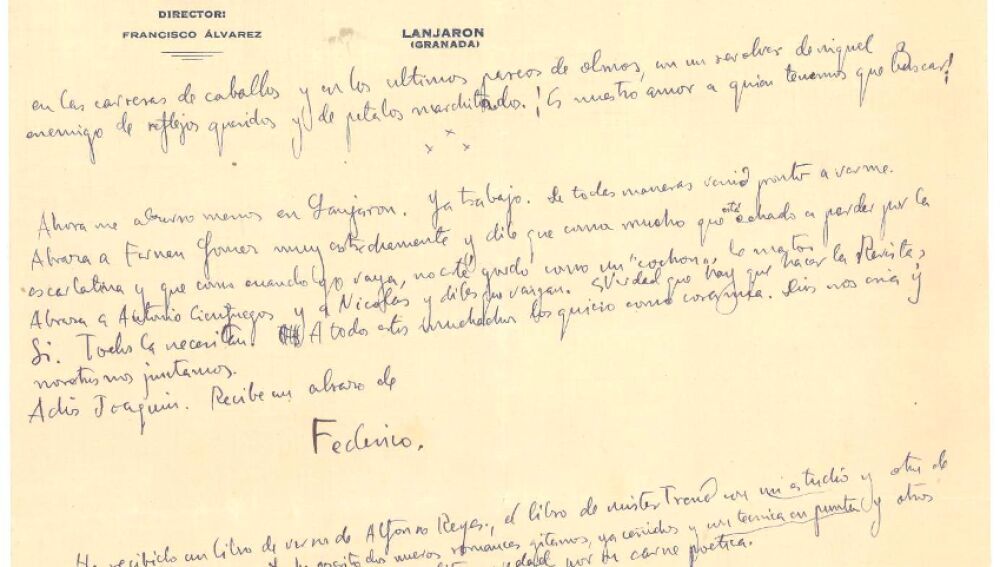 DIRECTOR:
FRANCISCO ÁLVAREZ
LANJARON
(GRANADA)
en las carreras de caballos y en los ultimos paseos de olmos, en un revolver de niquel
enemigo de reflejos queridos y de petalos marchitados. ¡Es nuestro amor a quien tenemos que buscar!
x x x
Ahora me aburro menos en Lanjaron. Ya trabajo. De todas maneras venid pronto a verme.
Abraza a Fernan Gomez muy estrechamente y dile que coma mucho que está echado a perder por la
escarlatina y que como cuando yo vaya, no esté gordo como un "cochon", le mato
Abraza a Antonio Cienfuegos y a Nicolas y diles que vengan. ¿Verdad que hay que hacer la Revista?
Si. Todos la necesitan. A todos estos muchachos los quiero como
nosotros nos juntamos.
Adios Joaquin. Recibe un abrazo de
Federico.
He recibido un libro de versos de Alfonso Reyes, el libro de mister Trend con un estudio y otro de
he escrito dos nuevos romances gitanos, ya ceñidos y en tecnica en punta y otros
por su carne poetica.